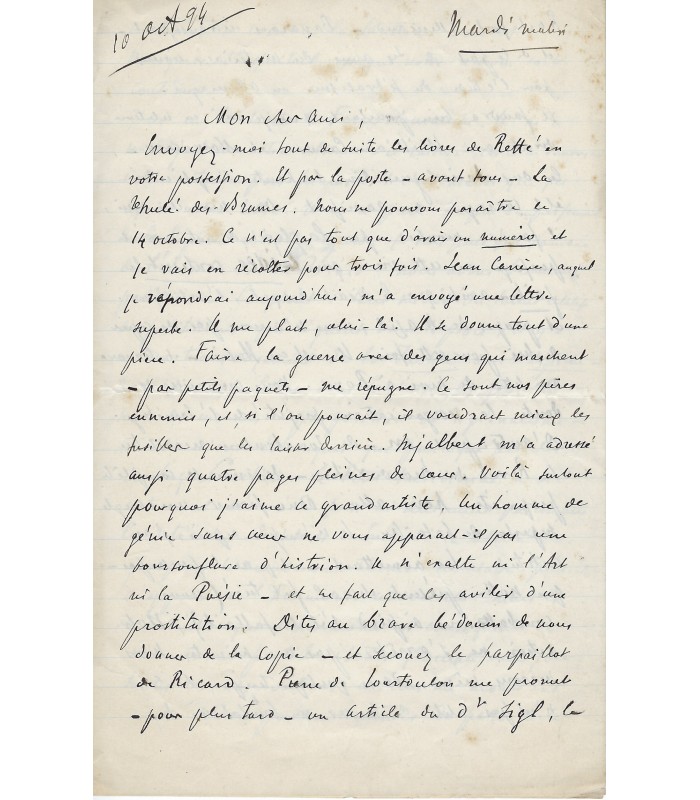 10 oct 94
Mardi matin
Mon cher ami,
Envoyez-moi tout de suite les livres de Retté en
votre possession. Et par la poste – avant tous – La
Thulé-des-Brumes. Nous ne pouvons paraître le
14 octobre. Ce n'est pas tout que d'avoir un numéro et
je vais en récolter pour trois fois. Jean Carrère, auquel
je répondrai aujourd'hui, m'a envoyé une lettre
superbe. Il me plait, celui-là. Il se donne tout d'une
pièce. Faire la guerre avec des gens qui marchent
– par petits paquets – me répugne. Ce sont nos pires
ennemis, et, si l'on pouvait, il vaudrait mieux les
fusiller que les laisser derrière. Injalbert m'a adressé
aussi quatre pages pleines de cœur. Voilà surtout
pourquoi j'aime ce grand artiste. Un homme de
génie sans cœur ne vous apparait-il pas une
boursouflure d'histrion. Il n'exalte ni l'Art
ni la Poésie – et ne fait que les avilir d'une
prostitution. Dites au brave bédouin de nous
donner de la Copie – et secouez le parpaillot
de Ricard. Pierre de Tourtoulon me promet
– pour plus tard – un article du Dr Sigl, le